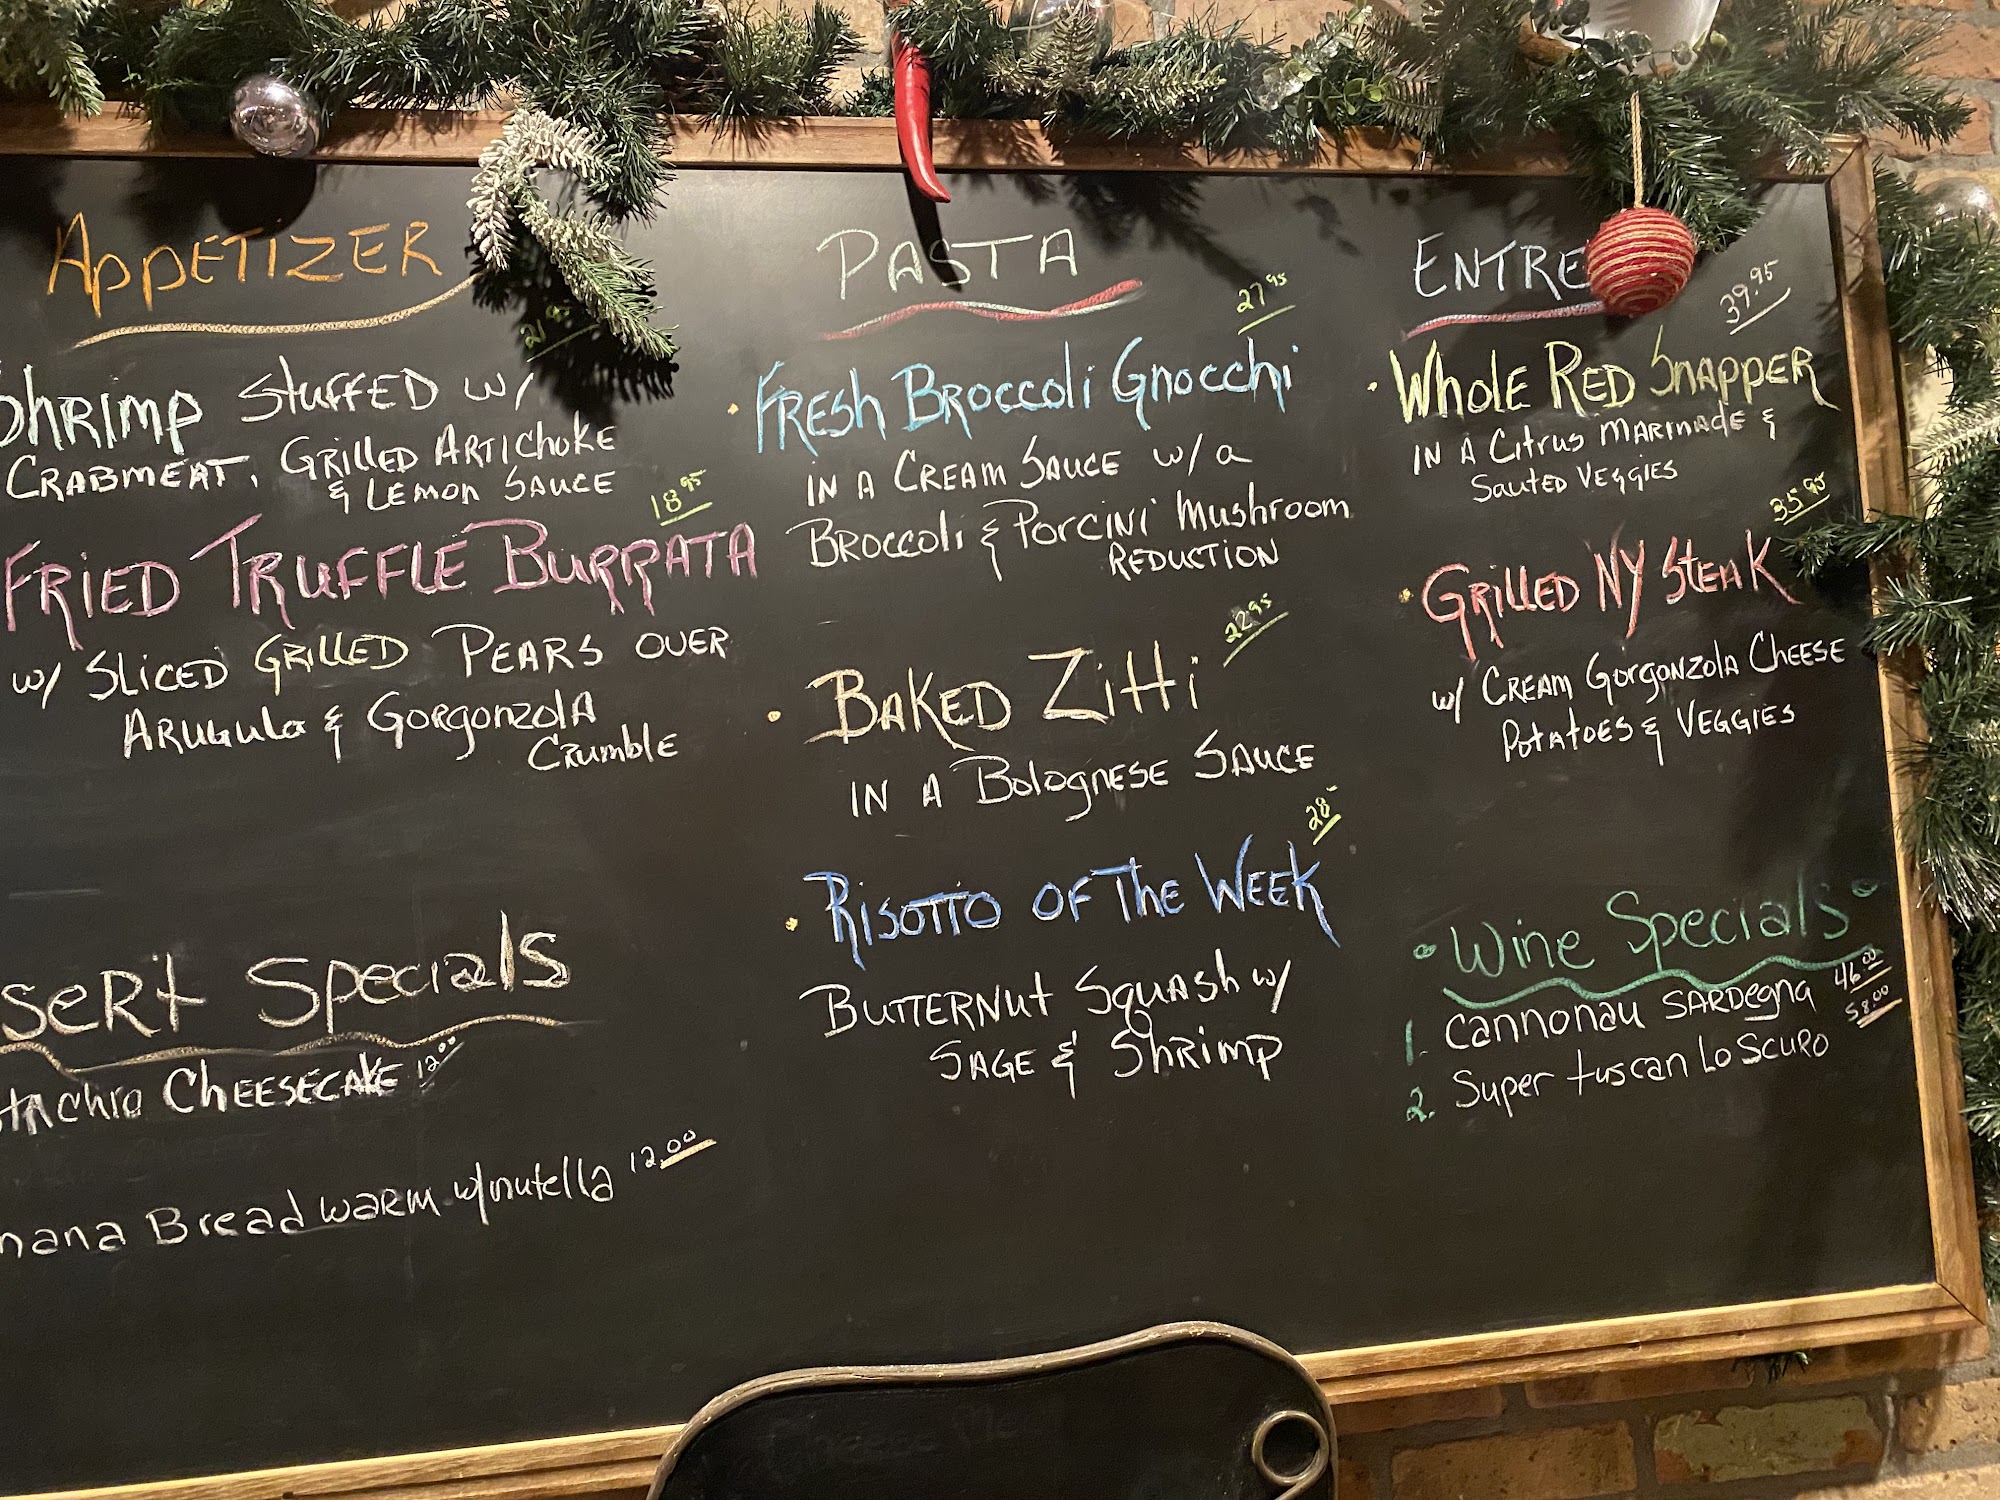 Appetizer
21.95
Shrimp Stuffed w/
Crabmeat, Grilled Artichoke
& Lemon Sauce
18.95
Fried Truffle Burrata
w/ Sliced Grilled Pears over
Arugula & Gorgonzola
Crumble
sert Specials
tachio Cheesecake 12.00
nana Bread warm w/nutella 12.00
Pasta
27.95
• Fresh Broccoli Gnocchi
in a Cream Sauce w/a
Broccoli & Porcini Mushroom
Reduction
22.95
• Baked Zitti
in a Bolognese Sauce
28-
• Risotto of the Week
Butternut Squash w/
Sage & Shrimp
Entre
39.95
• Whole Red Snapper
in a Citrus Marinade &
Sauted Veggies
35.95
• Grilled NY Steak
w/ Cream Gorgonzola Cheese
Potatoes & Veggies
• Wine Specials •
1. Cannonau Sardegna 46.00
2. Super tuscan Lo Scuro 58.00